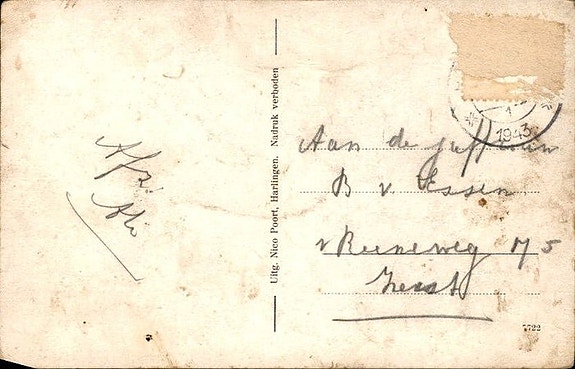 Afz.
Uitg. Nico Poort, Harlingen. Nadruk verboden
1943
Aan de juffrouw
B v Essen
v Reeneweg 175
Zeist
7722